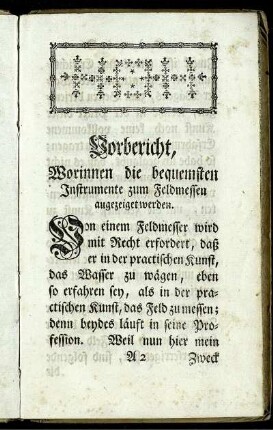 Vorbericht,
Worinnen die bequemsten
Instrumente zum Feldmessen
angezeiget werden.
Von einem Feldmesser wird
mit Recht erfordert, daß
er in der practischen Kunst,
das Wasser zu wägen, eben
so erfahren sey, als in der pra-
ctischen Kunst, das Feld zu messen;
denn beydes läuft in seine Pro-
fession. Weil nun hier mein
A 2 Zweck